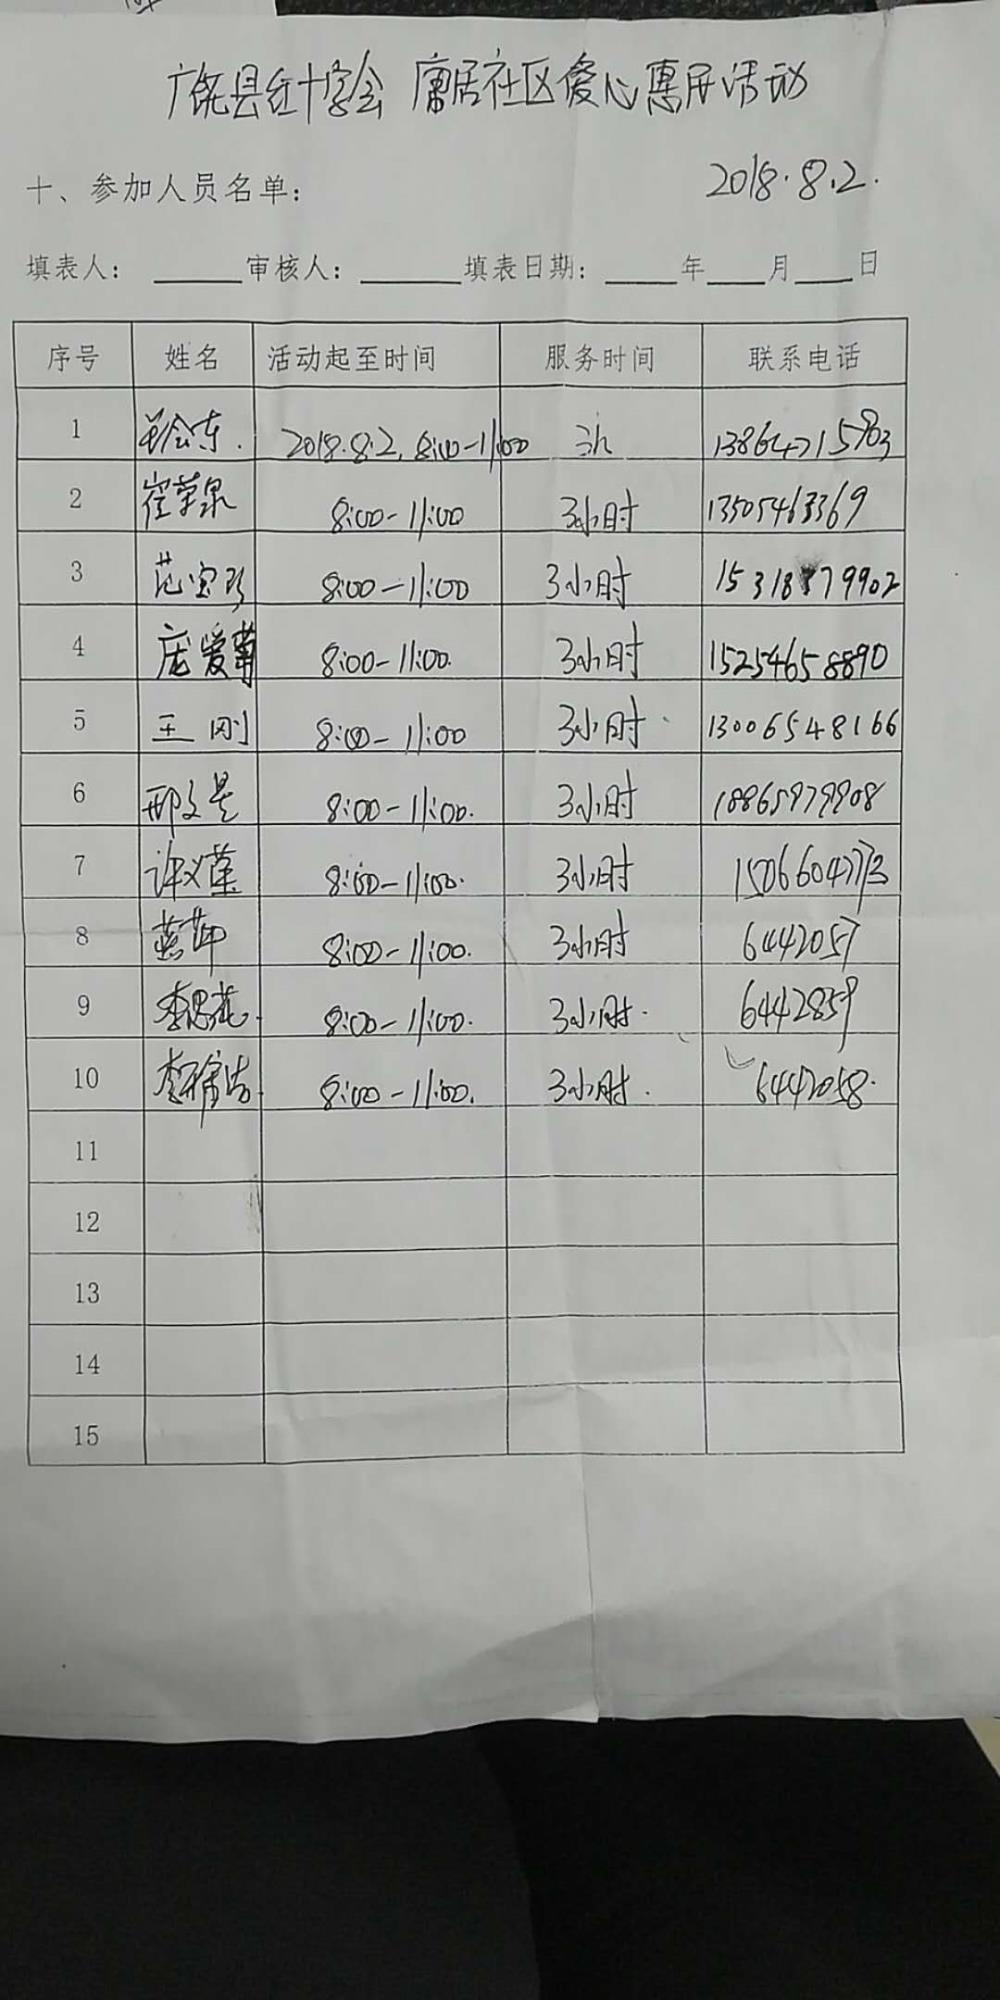 广饶县红十字会 康居社区爱心惠民活动
2018.8.2.
十、参加人员名单：
填表人： 审核人： 填表日期： 年 月 日
序号 姓名 活动起至时间 服务时间 联系电话
1 2018.8.2. 8:00-11:00 13864715903
2 崔荣泉 8:00-11:00 3小时 13505463369
3 范宝珍 8:00-11:00 3小时 15318879902
4 庞爱菊 8:00-11:00. 3小时 15254658890
5 王刚 8:00-11:00 3小时 13006548166
6 邢文昊 8:00-11:00. 3小时 18865979908
7 许义莲 8:00-11:00. 3小时 15066047773
8 燕苹 8:00-11:00. 3小时 6442057
9 李思苑 8:00-11:00. 3小时. 6442859
10 8:00-11:00. 3小时. 6442058.
11
12
13
14
15